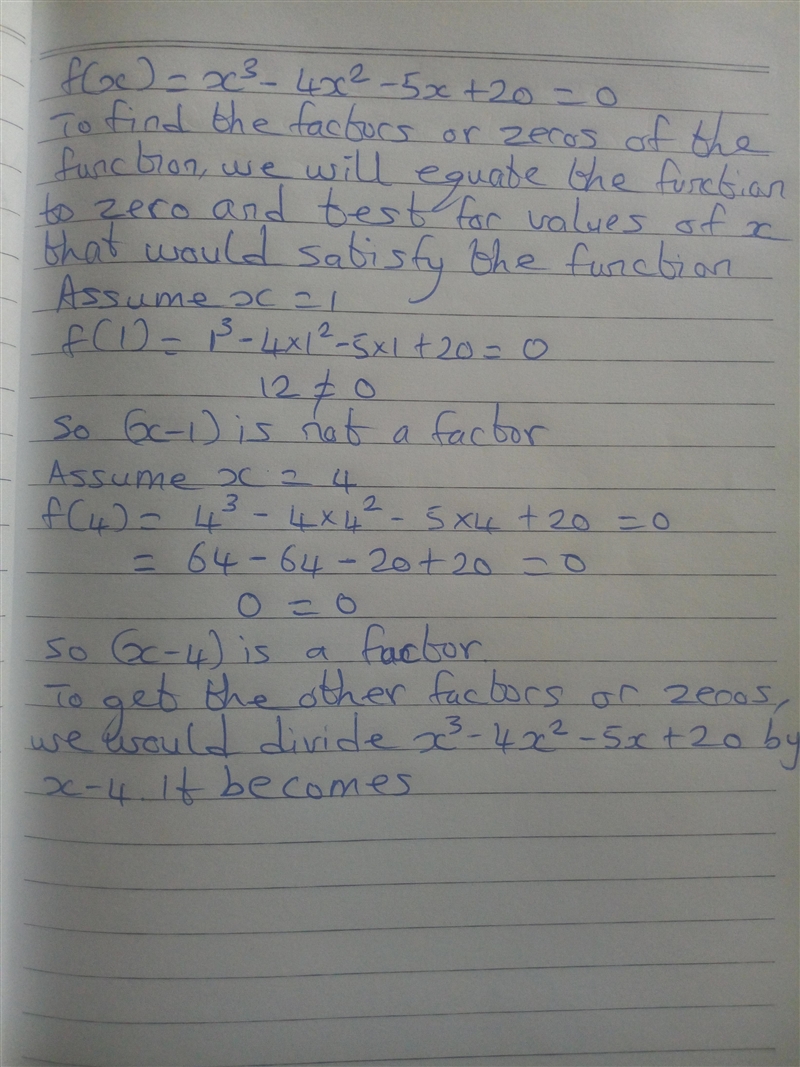 f(x) = x³ - 4x² - 5x + 20 = 0
To find the factors or zeros of the
function, we will equate the function
to zero and test for values of x
that would satisfy the function
Assume x = 1
f(1) = 1³ - 4×1² - 5×1 + 20 = 0
12 ≠ 0
So (x-1) is not a factor
Assume x = 4
f(4) = 4³ - 4×4² - 5×4 + 20 = 0
= 64 - 64 - 20 + 20 = 0
0 = 0
So (x-4) is a factor
To get the other factors or zeros,
we would divide x³ - 4x² - 5x + 20 by
x-4. It becomes